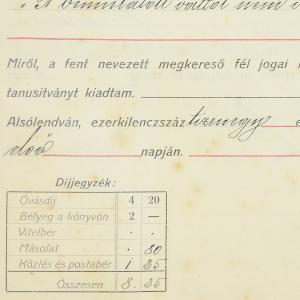 "A bemutatott váltót nem
Miről, a fent nevezett megkereső fél jogai
tanusitványt kiadtam.
Alsólendván, ezerkilenczszáz tizenegy
első napján.
Dijjegyzék:
Óvásdij 4 20
Bélyeg a könyvön 2 —
Vitelbér . .
Másolat . 80
Közlés és postabér 1 35
Összesen 8. 35